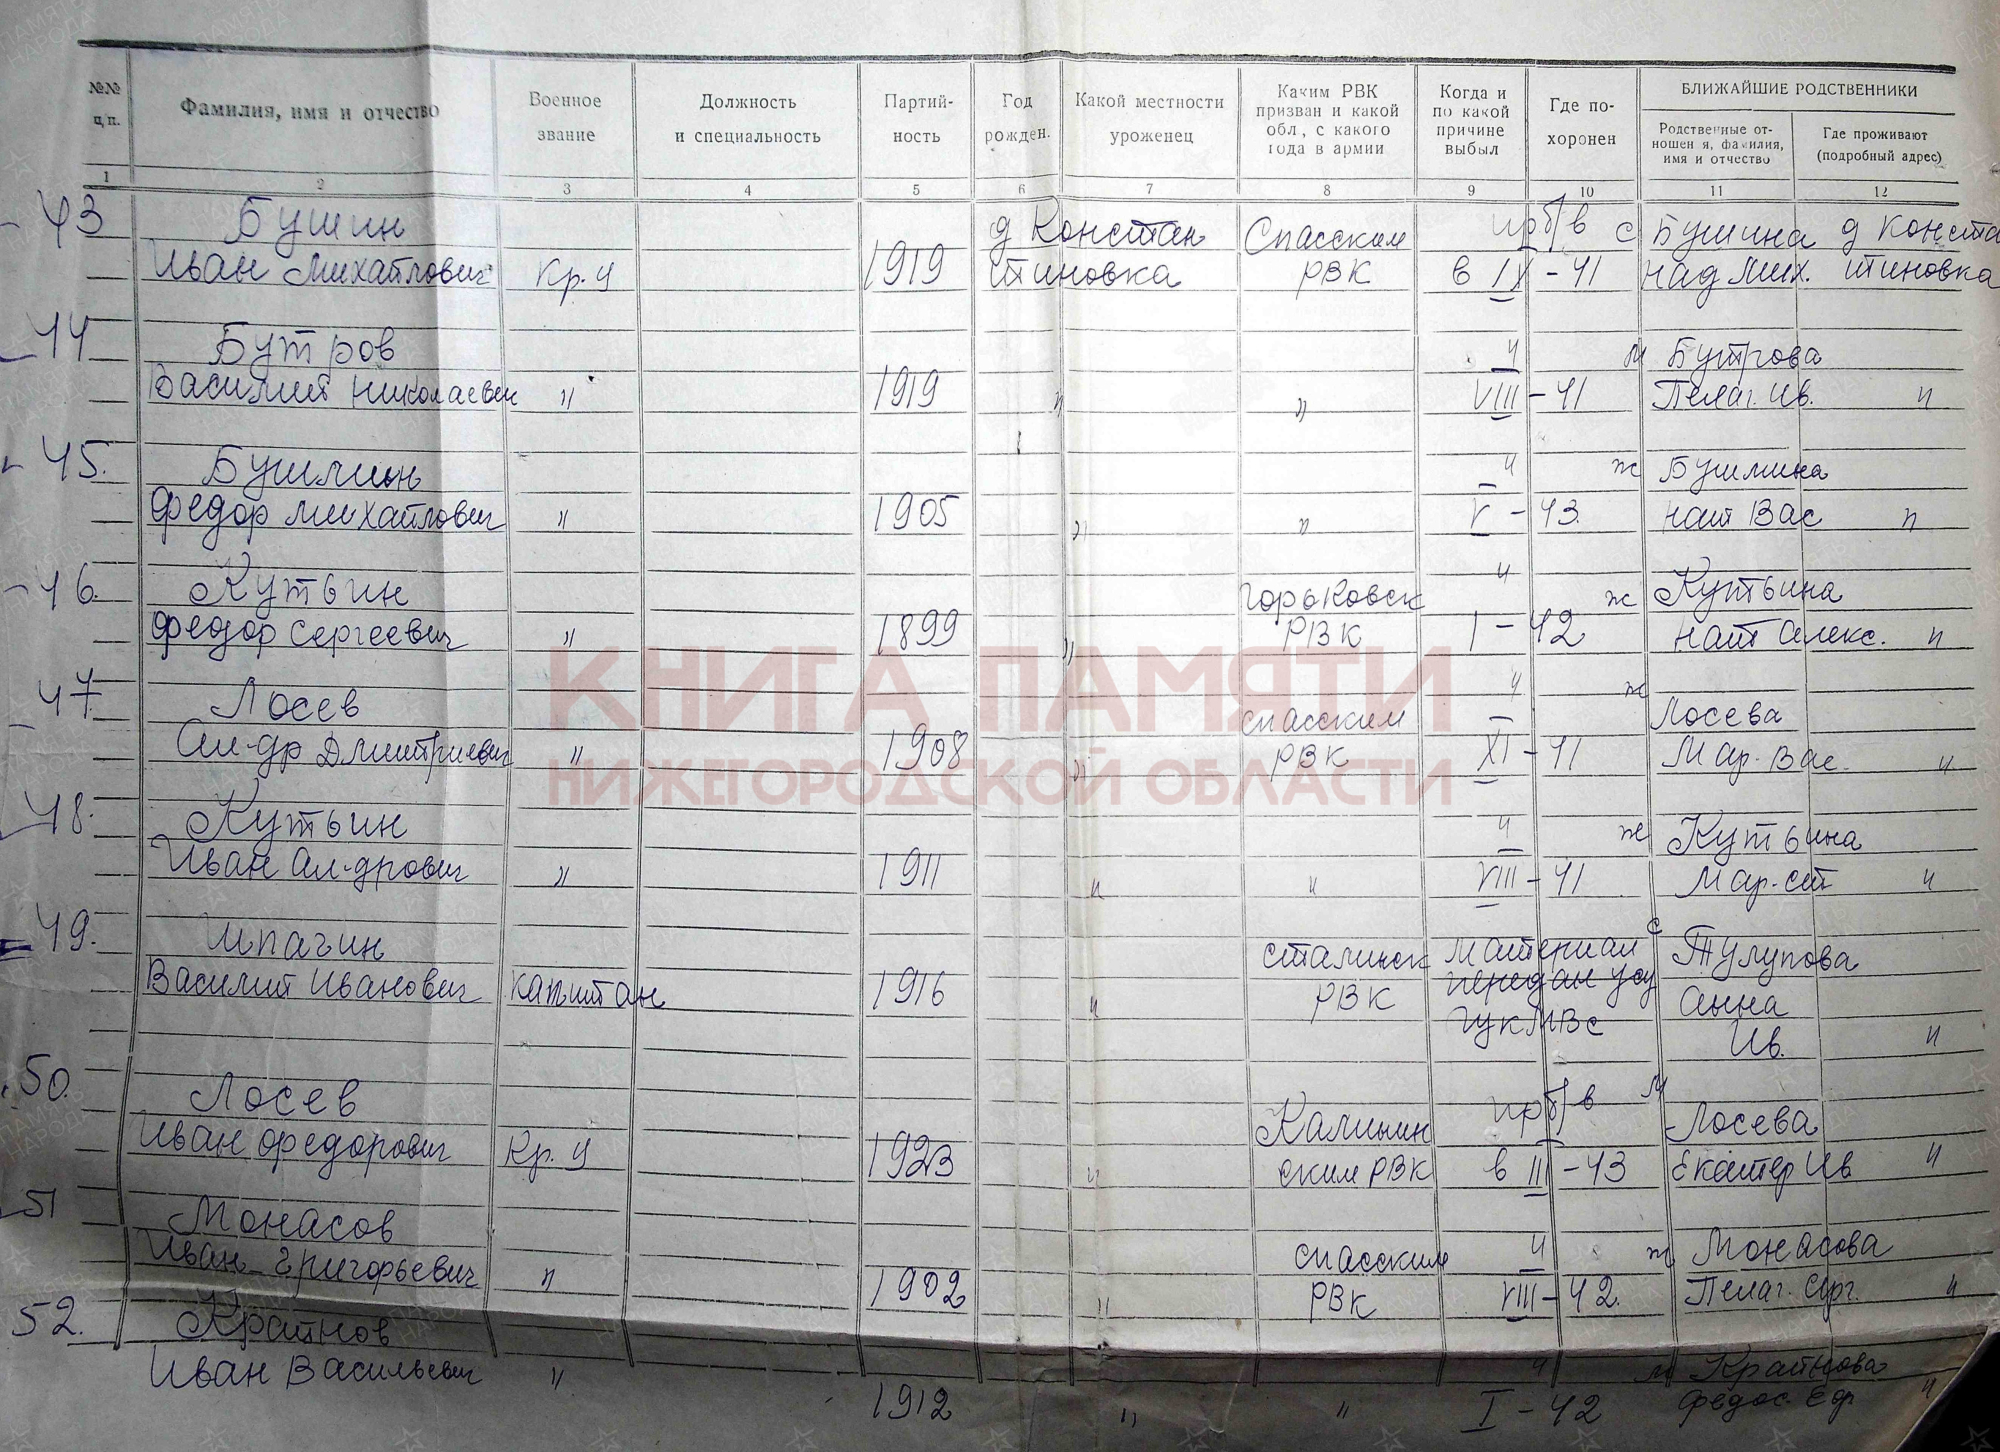 №№ Фамилия, имя и отчество Военное Должность Партий- Год Какой местности Каким РВК Когда и Где по- БЛИЖАЙШИЕ РОДСТВЕННИКИ
п.п. звание и специальность ность рожден. уроженец призван и какой по какой хоронен Родственные от- Где проживают
обл., с какого причине ношения, фамилия, (подробный адрес)
года в армии выбыл имя и отчество
1 2 3 4 5 6 7 8 9 10 11 12
43 Бушин д Констан Спасским пр б/в с Бушина д Конста
Иван Михайлович Кр. у 1919 тиновка РВК в IX - 41 над Мих. нтиновка
44 Бутров " м Бутрова
Василий Николаевич " 1919 " " VIII - 41 Пелаг. Ив. "
45. Бушмин " ж Бушмина
Федор Михайлович " 1905 " " V - 43. Нат Вас "
46. Кутьин Горьковск " ж Кутьина
Федор Сергеевич " 1899 " РВК I - 42 Нат Алекс. "
47. Лосев спасским " ж Лосева
Ал-др Дмитриевич " 1908 " РВК XI - 41 Мар. Вас. "
48. Кутьин " ж Кутьина
Иван Ал-дрович " 1911 " " VIII - 41 Мар. "
49. Шпагин сталинск Материал с Тулупова
Василий Иванович капитан 1916 " РВК передан Анна
ГУК МВС Ив. "
50. Лосев Калинин пр б/в м Лосева
Иван Федорович Кр. у 1923 " ским РВК в III - 43 Екатер Ив "
51 Монасов спасским " ж Монасова
Иван Григорьевич " 1902 " РВК VIII - 42. Пелаг. "
52. Крайнов " м Крайнова
Иван Васильевич " 1912 " " I - 42 Федос. Ефр "
КНИГА ПАМЯТИ
НИЖЕГОРОДСКОЙ ОБЛАСТИ